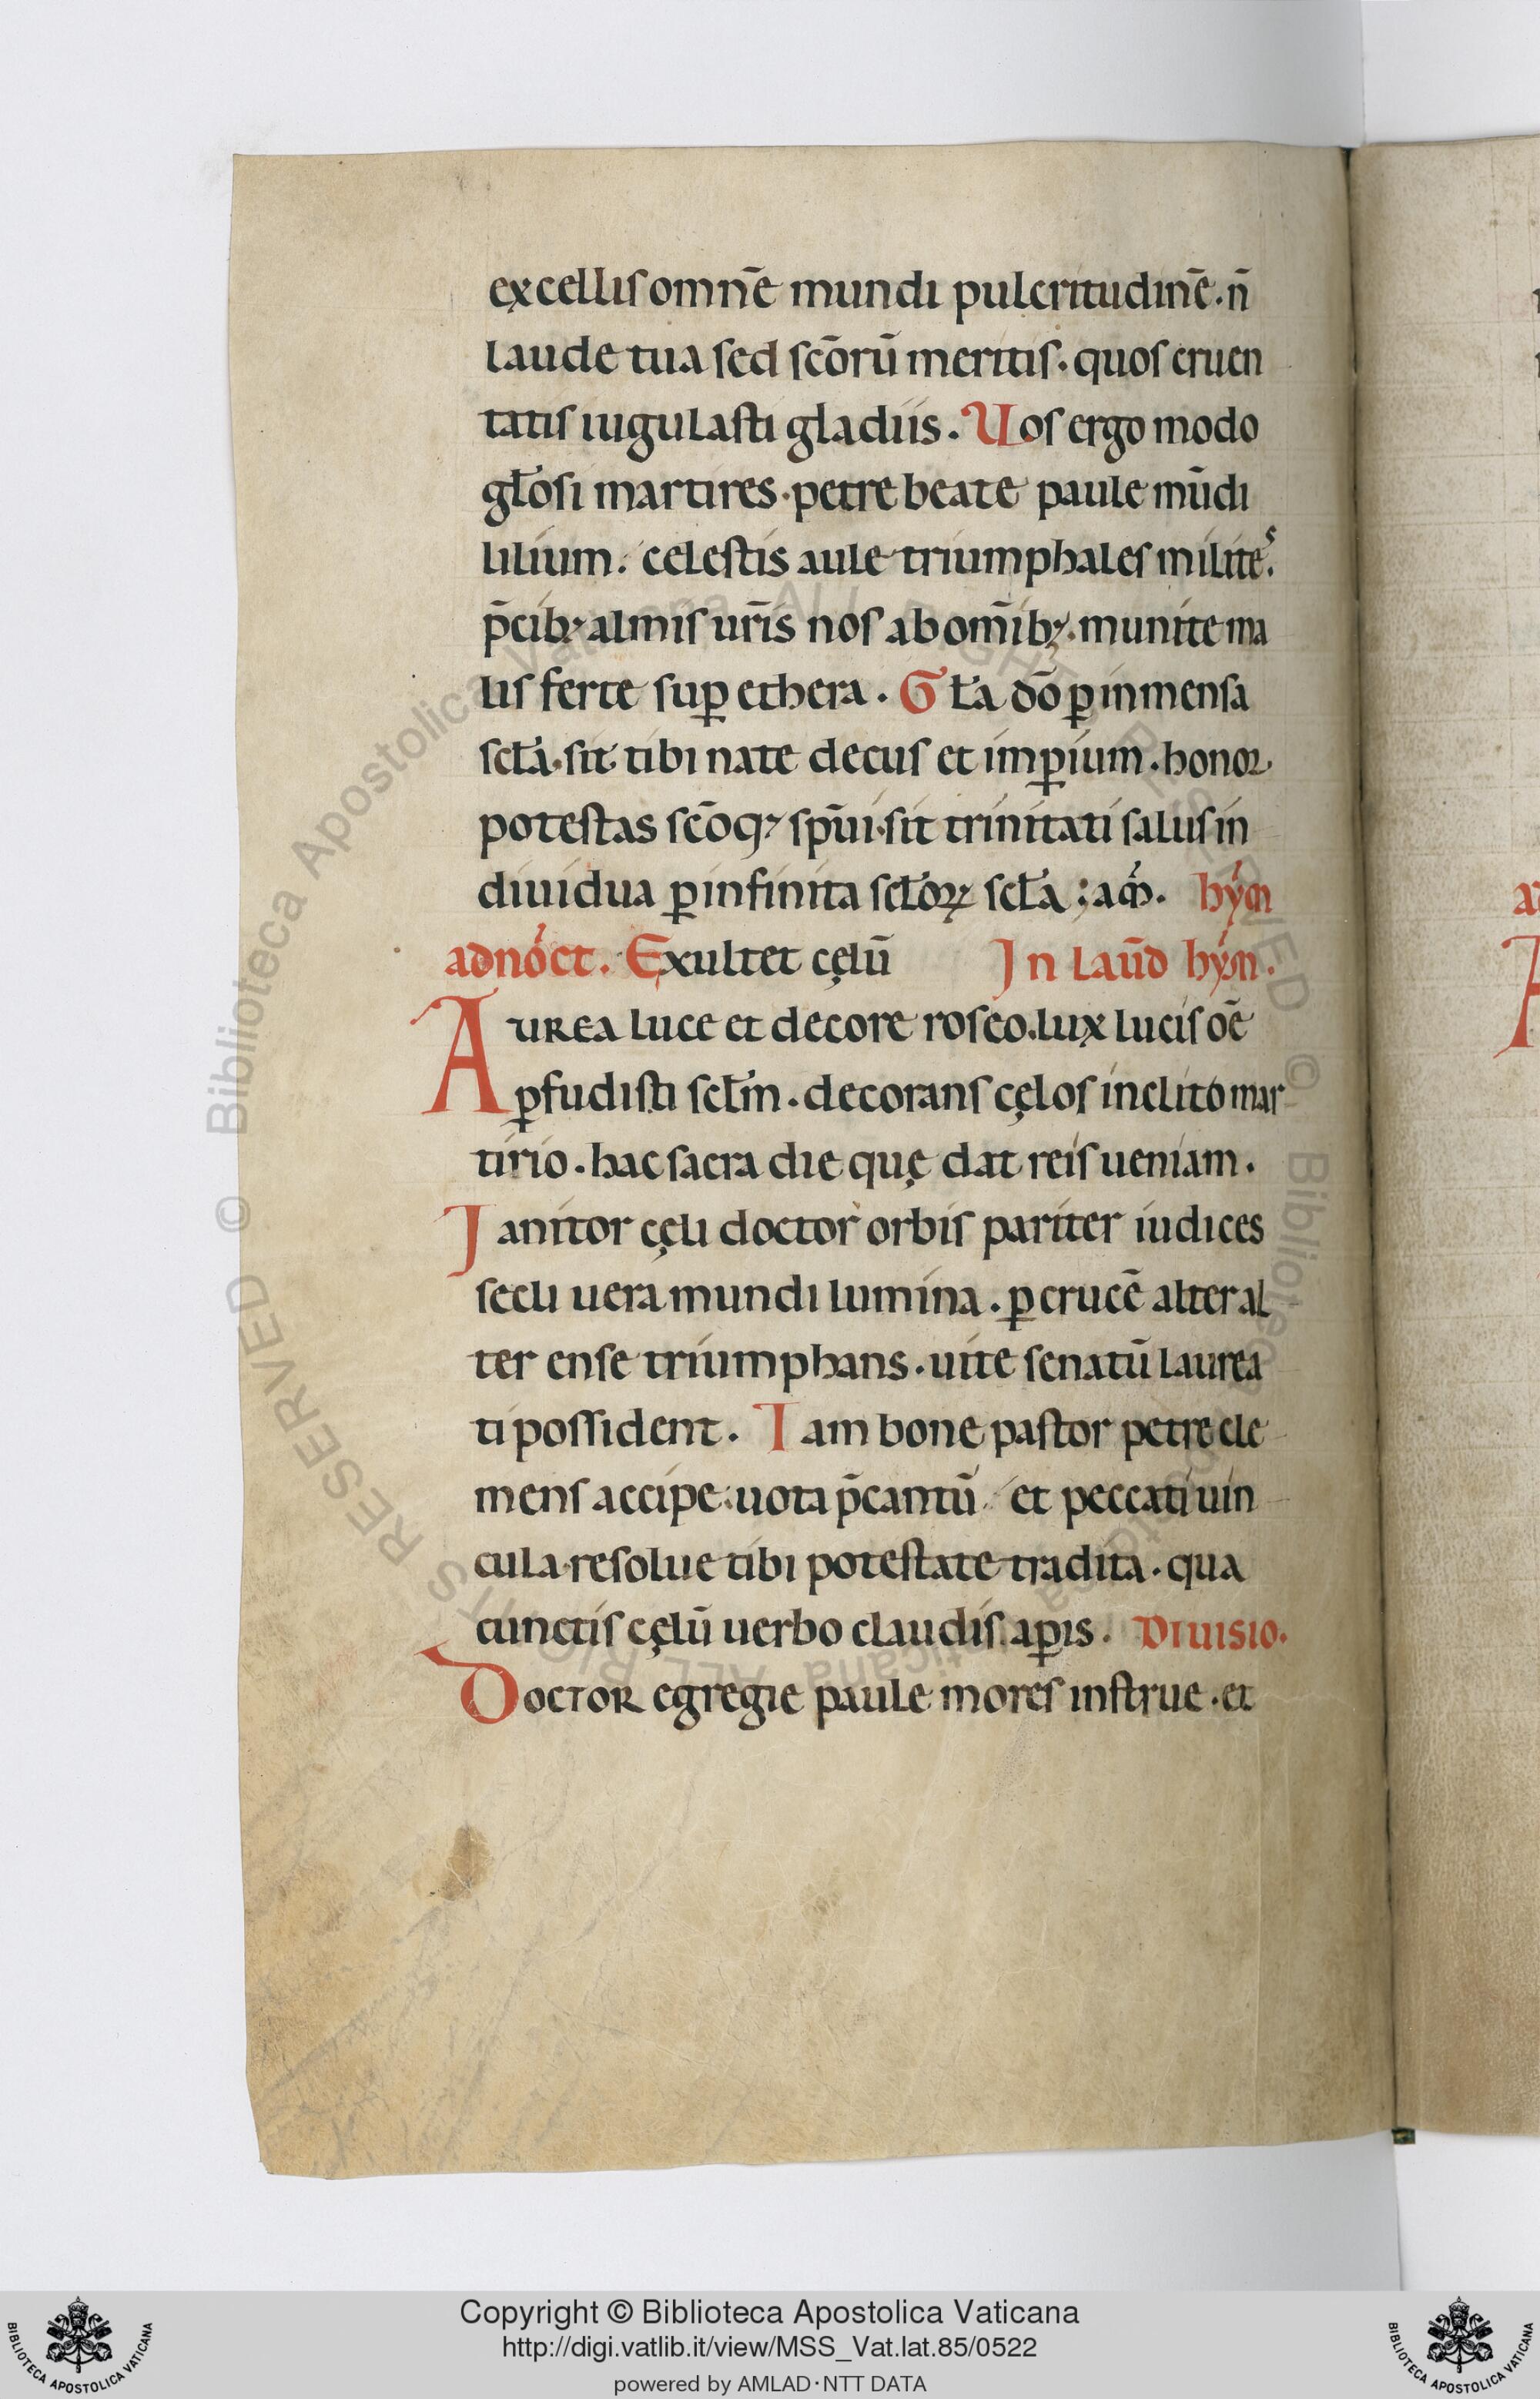 excellis omnē mundi pulcritudinē · n̄
laude tua sed scōrū meritis · quos cruen
tatis iugulasti gladiis . Uos ergo modo
głosi martires · petre beate paule mūdi
lilium . celestis aule triumphales milites .
p̄cib; almis ur̄is nos ab om̄ib; . munite ma
lis ferte suꝑ ethera . Gła dō ꝑ inmensa
scła · sit tibi nate decus et imꝑium . honor
potestas scōq; sp̄ui · sit trinitati salus in
diuidua ꝑ infinita scłoꝝ scła ; am̄ . hym̄
ad noct . Exultet cęlū In laud̄ hym̄ .
Aurea luce et decore roseo . lux lucis oē
ꝑfudisti scłm . decorans cęlos inclito mar
tirio . hac sacra die quę dat reis ueniam .
Janitor cęli doctor orbis pariter iudices
secli uera mundi lumina . ꝑ crucē alter al
ter ense triumphans . uite senatū laurea
ti possident . Iam bone pastor petre cle
mens accipe uota p̄cantū et peccati uin
cula resolue tibi potestate tradita . qua
cunctis cęlū uerbo claudis aꝑis . DIUISIO .
Doctor egregie paule mores instrue . et
Copyright © Biblioteca Apostolica Vaticana
http://digi.vatlib.it/view/MSS_Vat.lat.85/0522
powered by AMLAD·NTT DATA
BIBLIOTECA APOSTOLICA VATICANA
BIBLIOTECA APOSTOLICA VATICANA